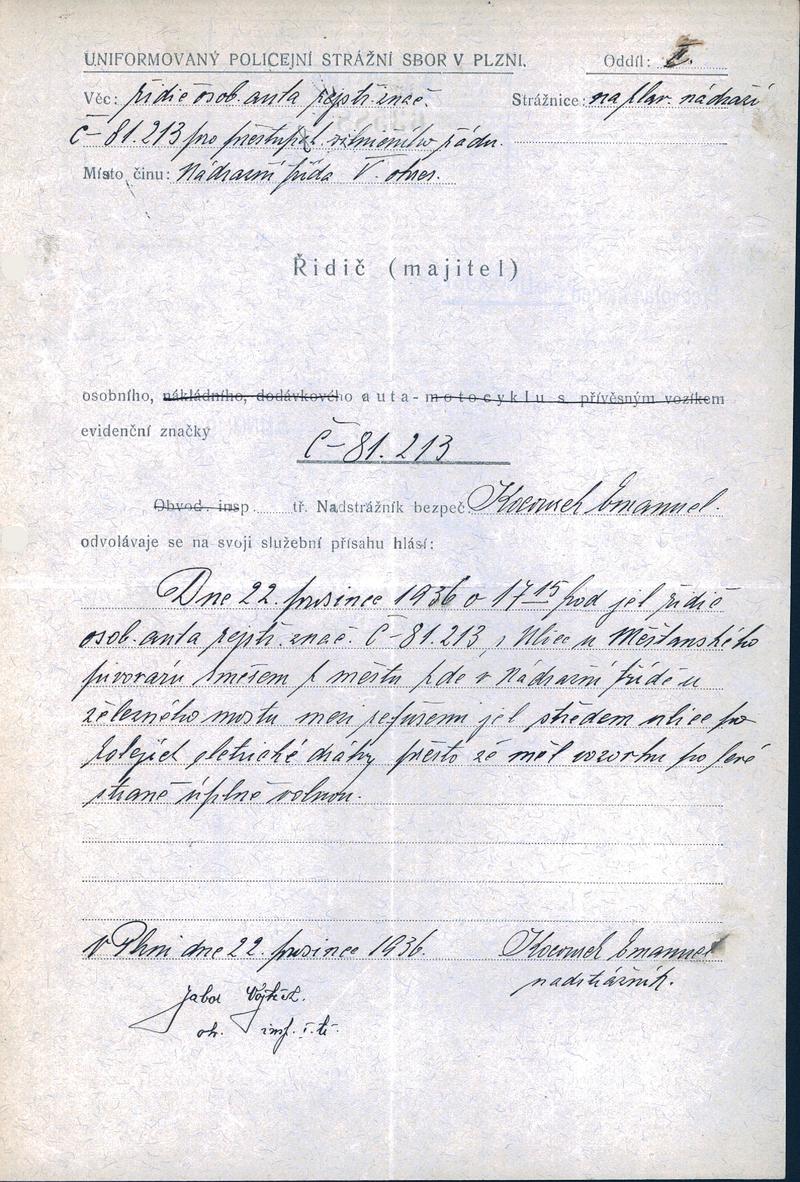 UNIFORMOVANÝ POLICEJNÍ STRÁŽNÍ SBOR V PLZNI. Oddíl: I.
Věc: řidič osob. auta rejstř. znač. Strážnice: na hlav. nádraží
Č-81.213 pro přestupek silničního řádu.
Místo činu: Nádražní třída V. okres.
Řidič (majitel)
osobního, nákládního, dodávkového auta-motocyklu s přívěsným vozíkem
evidenční značky
Č-81.213
Obvod. insp tř. Nadstrážník bezpeč. Emanuel.
odvolávaje se na svoji služební přísahu hlásí:
Dne 22. prosince 1936 o 17 15 hod jel řidič
osob. auta rejstř. znač. Č-81.213 z Ulice u Měšťanského
pivovaru směrem k městu kde v Nádražní třídě u
železného mostu mezi refusemi jel středem ulice po
kolejích eletrické dráhy přesto že měl vozovku po levé
straně úplně volnou.
V Plzni dne 22. prosince 1936. Emanuel
nadstrážník.
Vojtěch
insp.